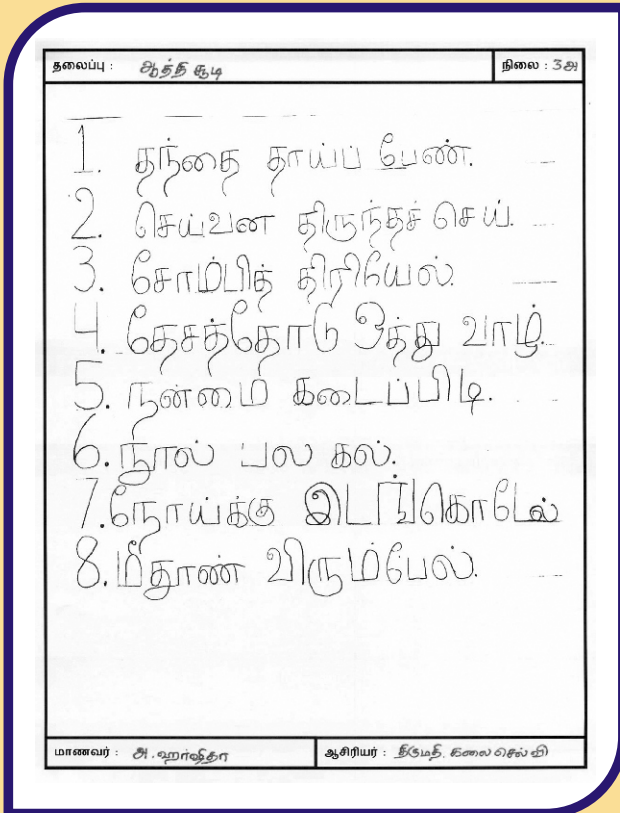 தலைப்பு : ஆத்தி சூடி நிலை : 3அ
1. தந்தை தாய்ப் பேண்.
2. செய்வன திருந்தச் செய்.
3. சோம்பித் திரியேல்.
4. தேசத்தோடு ஒத்து வாழ்.
5. நன்மை கடைப்பிடி.
6. நூல் பல கல்.
7. நோய்க்கு இடங்கொடேல்
8. மீதூண் விரும்பேல்.
மாணவர் : அ. ஹர்ஷிதா ஆசிரியர் : திருமதி. கலை செல்வி